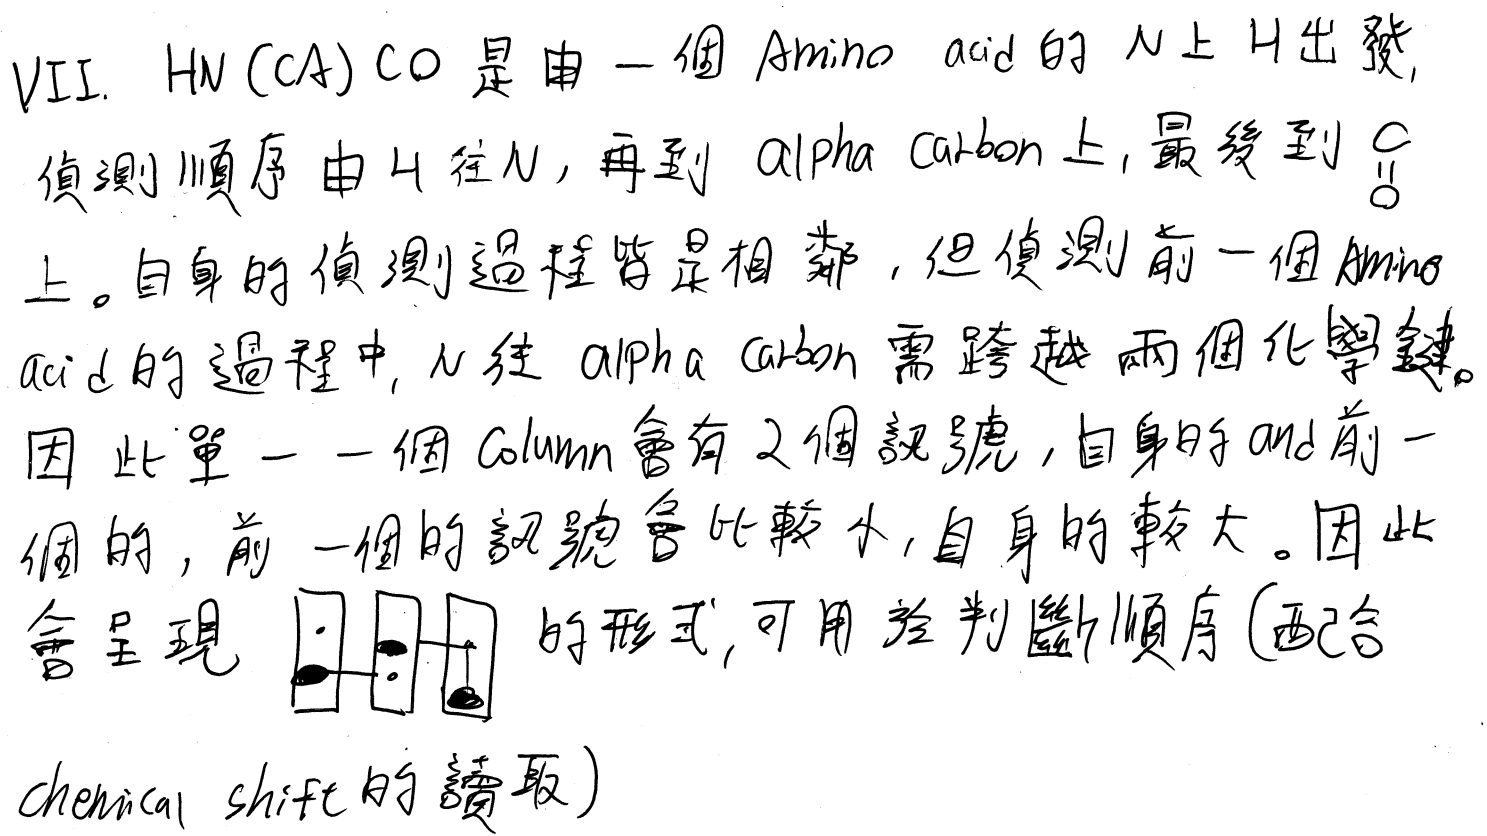 VII. HN(CA)CO 是由一個 Amino acid 的 N上 H出發,
偵測順序由H往N, 再到 alpha carbon上, 最後到 C=O
上。自身的偵測過程皆是相鄰, 但偵測前一個 Amino
acid的過程中, N往 alpha carbon 需跨越兩個化學鍵。
因此單一一個 Column會有2個訊號, 自身的and前一
個的, 前一個的訊號會比較小, 自身的較大。因此
會呈現 的形式, 可用於判斷順序(配合
chemical shift的讀取)